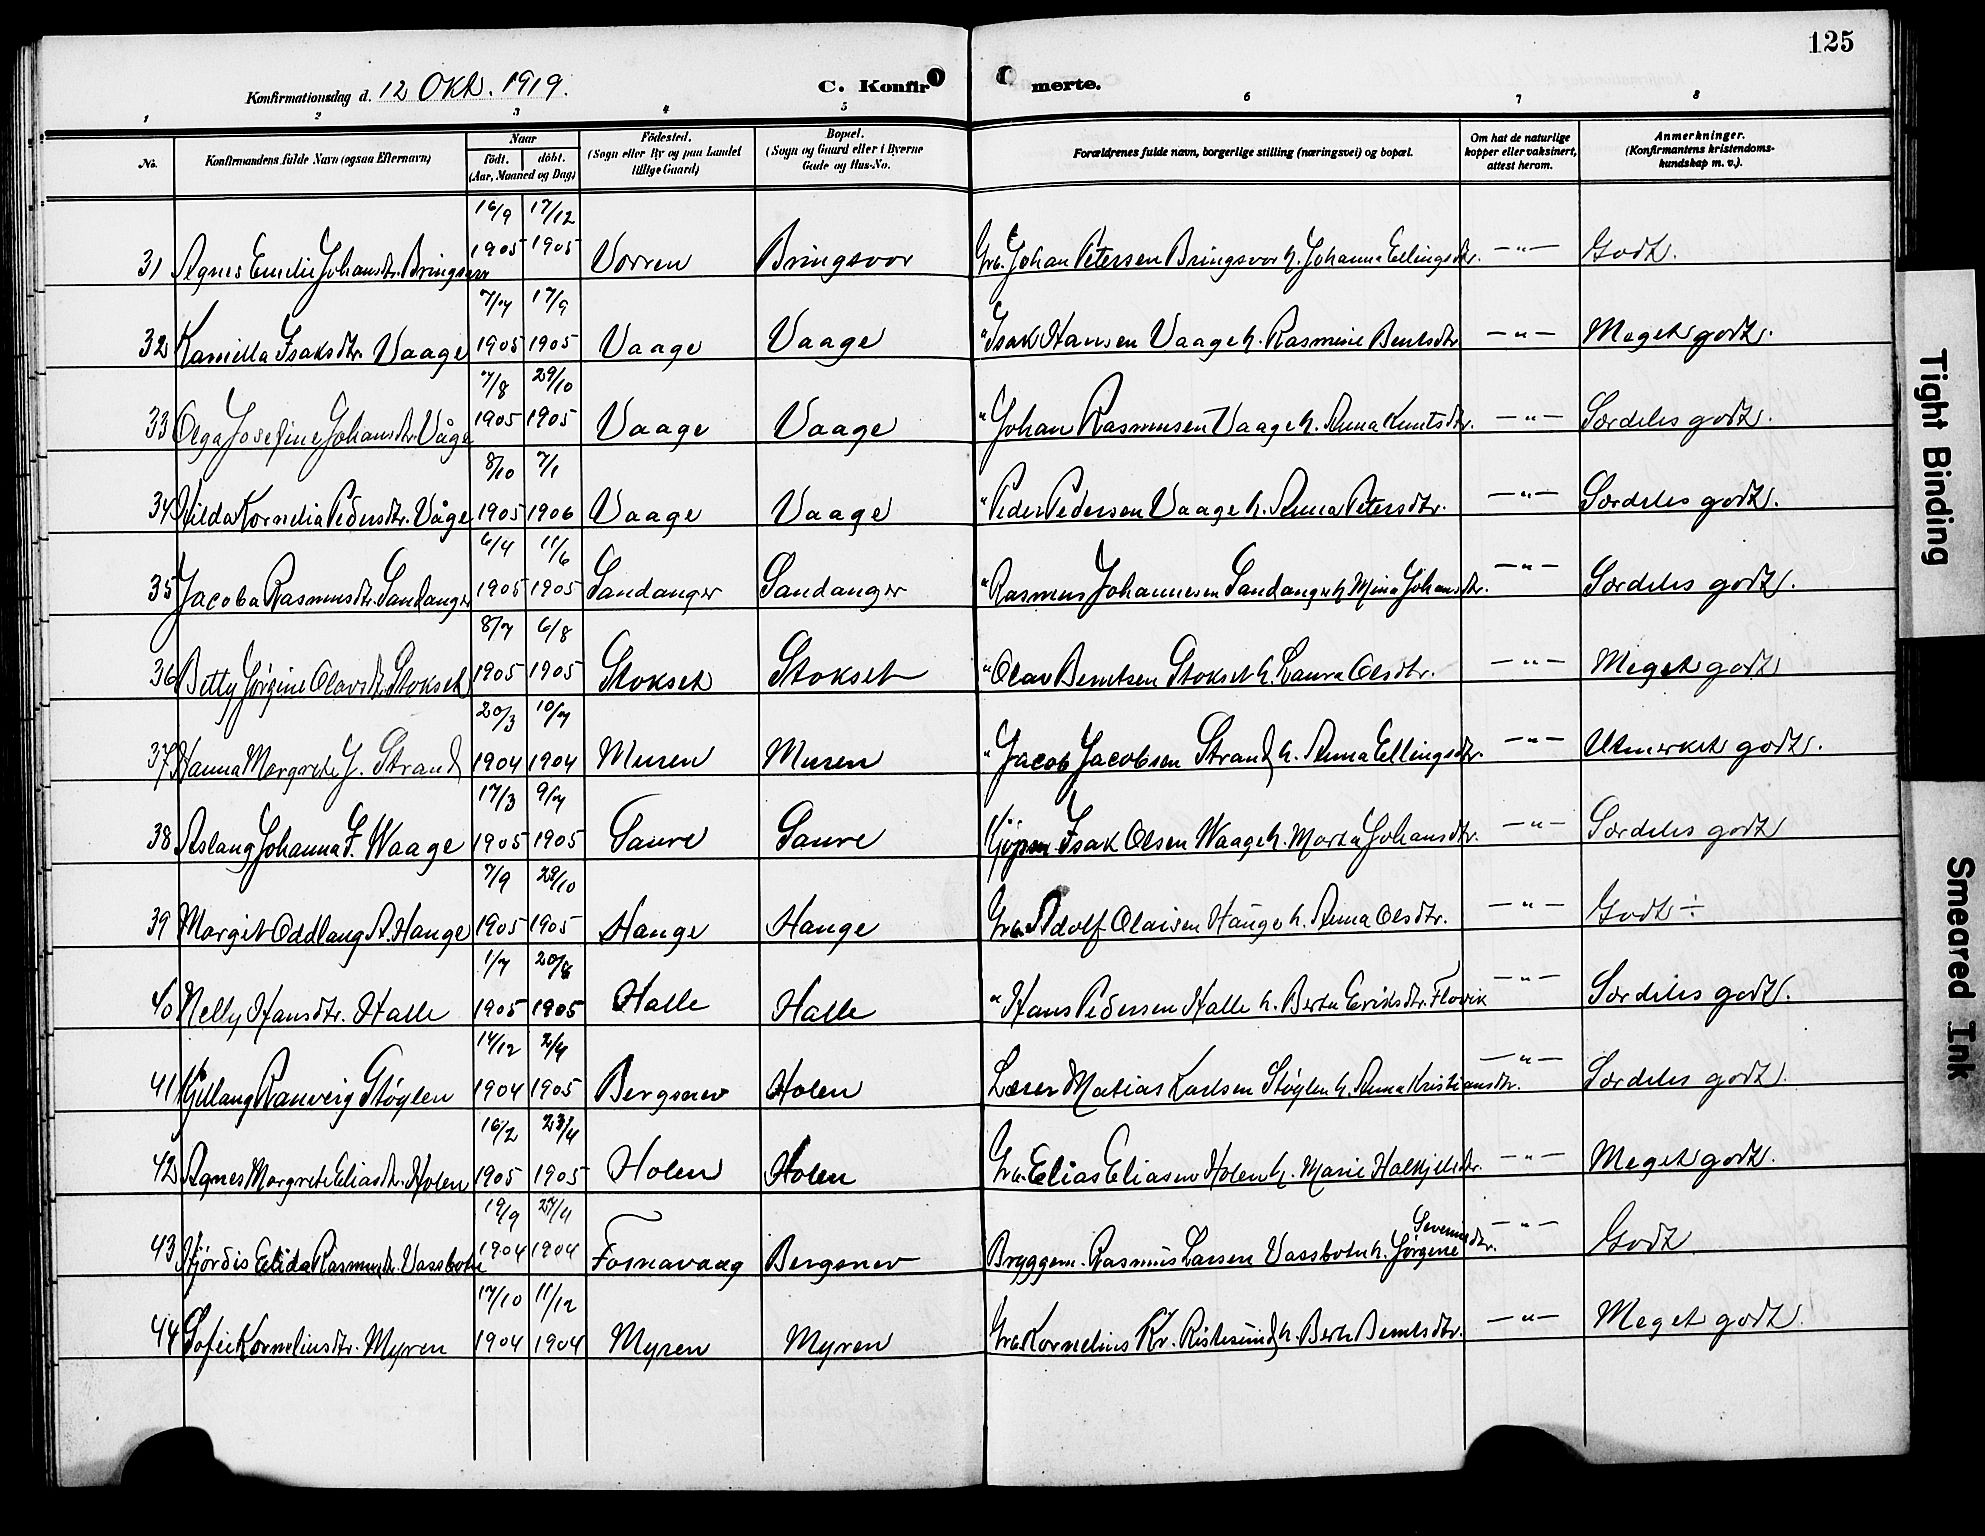 125
Konfirmationsdag d. 12 Okt. 1919.
C. Konfir merte.
1 2 3 4 5 6 7 8
No. Konfirmandens fulde Navn (ogsaa Efternavn) Naar født. døbt. (Aar, Maaned og Dag) Fødested. (Sogn eller By og paa Landet tillige Gaard) Bopæl. (Sogn og Gaard eller i Byerne Gade og Hus-No. Forældrenes fulde navn, borgerlige stilling (næringsvei) og bopæl. Om hat de naturlige kopper eller vaksinert, attest herom. Anmerkninger. (Konfirmantens kristendoms-kundskap m. v.).
16/9 17/12
31 Agnes Emelie Johansdtr. Bringsvor 1905 1905 Vorren Bringsvor Grb. Johan Petersen Bringsvor h. Johanna Ellingsdtr. —"— Godt.
7/7 17/9
32 Kamilla Isaksdtr. Vaage 1905 1905 Vaage Vaage " Isak Hansen Vaage h. Rasmine Bentsdtr —"— Meget godt.
7/8 29/10
33 Olga Josefine Johansdtr. Våge 1905 1905 Vaage Vaage " Johan Rasmussen Vaage h. Anna Knutsdtr. —"— Særdeles godt.
8/10 7/1
34 Hilda Kornelia Pedersdtr. Våge 1905 1906 Vaage Vaage " Peder Pedersen Vaage h. Anna Petersdtr. —"— Særdeles godt.
6/4 11/6
35 Jacoba Rasmusdtr. Sandanger 1905 1905 Sandanger Sandanger " Rasmus Johannesen Sandanger h Mina Johansdtr. —"— Særdeles godt.
8/7 6/8
36 Betty Jørgine Olavsdt. Stokset 1905 1905 Stokset Stokset " Olav Berntsen Stokset h. Laura Olsdtr. —"— Meget godt
20/3 10/7
37 Hanna Margrete J. Strand 1904 1904 Muren Muren " Jacob Jacobsen Strand h. Anna Ellingsdtr. —"— Utmerket godt.
17/3 9/7
38 Aslaug Johanna I. Waage 1905 1905 Saure Saure Kjøpm. Isak Olsen Waage h. Marta Johansdtr. —"— Særdeles godt
7/9 29/10
39 Margit Oddlaug A. Hauge 1905 1905 Hauge Hauge Grb. Adolf Olaisen Hauge h. Anna Olsdtr. —"— Godt ÷
1/7 20/8
40 Nelly Hansdtr. Halle 1905 1905 Halle Halle " Hans Pedersen Halle h. Berta Eriksdtr. Flovik —"— Særdeles godt.
14/12 2/4
41 Gullaug Ranveig Støylen 1904 1905 Bergsnev Holen Lærer Matias Karlsen Støylen h. Anna Kristiansdtr. —"— Særdeles godt.
16/2 23/4
42 Agnes Margrete Eliasdtr. Holen 1905 1905 Holen Holen Grb. Elias Eliassen Holen h. Marie Halkjelsdtr. —"— Meget godt.
19/9 27/11
43 Hjørdis Elida Rasmusdtr. Vassbotn 1904 1904 Fosnavaag Bergsnev Bryggem. Rasmus Larsen Vassbotn h. Jørgine Severinsdtr. —"— Godt
17/10 11/12
44 Sofie Korneliusdtr. Myren 1904 1904 Myren Myren Grb. Kornelius Kr. Ristesund h. Berte Berntsdtr. —"— Meget godt.
Tight Binding
Smeared Ink